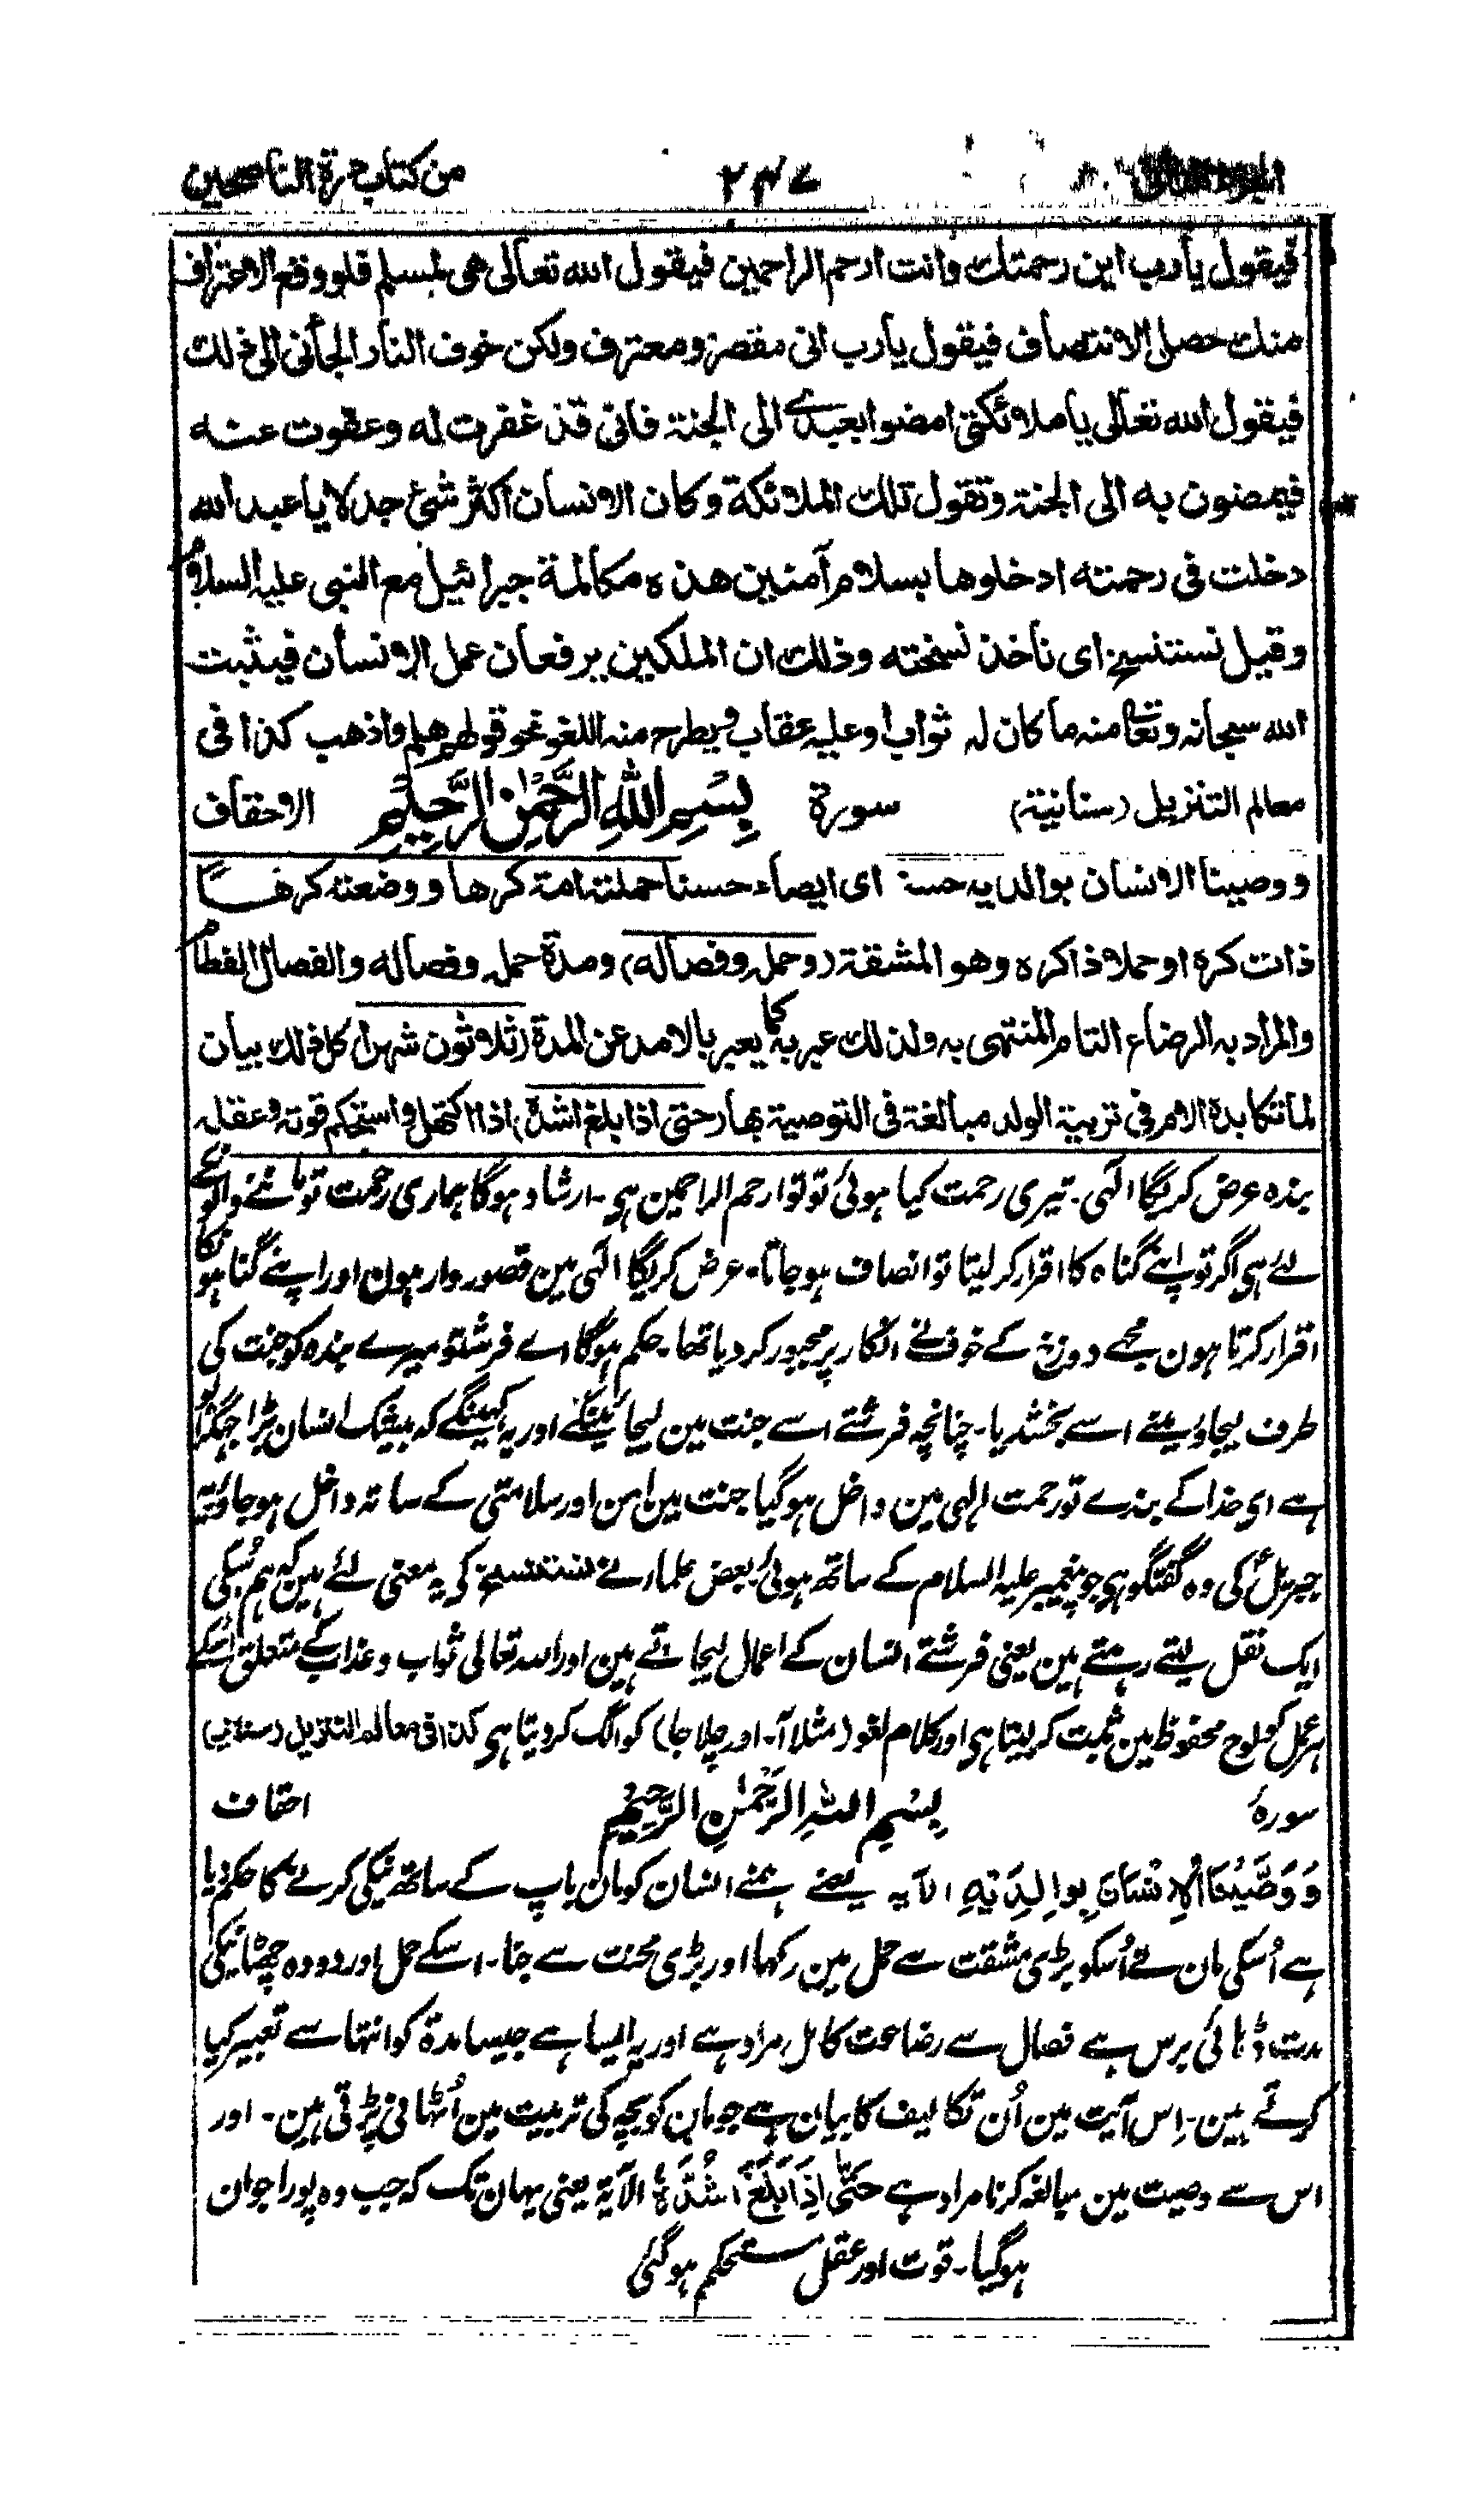 من كتاب درة الناصحين ٢٤٧
فيقول يارب اين رحمتك وانت ارحم الراحمين فيقول الله تعالى هى لمسلم فلو وقع الاعتراف
منك حصل الانتصاف فيقول يارب انى مقصر ومعترف ولكن خوف النار الجأنى الى ذلك
فيقول الله تعالى ياملائكتى امضوا بعبدى الى الجنة فانى قد غفرت له وعفوت عنه
فيمضون به الى الجنة وتقول تلك الملائكة وكان الانسان اكثر شئ جدلا ياعبد الله
دخلت فى رحمته ادخلوها بسلام آمنين هذه مكالمة جبرائيل مع النبى عليه السلام
وقيل نستنسخ اى نأخذ نسخته وذلك ان الملكين يرفعان عمل الانسان فيثبت
الله سبحانه وتعا منه ما كان له ثواب او عليه عقاب ويطرح منه اللغو نحو قولهم هلم واذهب كذا فى
معالم التنزيل (سنانية) سورة بِسْمِ اللهِ الرَّحْمٰنِ الرَّحِيْمِ الاحقاف
ووصينا الانسان بوالديه حسنا اى ايصاء حسنا حملته امه كرها ووضعته كرهــا
ذات كره او حملا ذاكره وهو المشقة (وحمله وفصاله) ومدة حمله وفصاله والفصال الفطام
والمراد به الرضاع التام المنتهى به ولذلك عبر به كما يعبر بالامد عن المدة (ثلاثون شهرا) كل ذلك بيان
لما تكابده الام فى تربية الولد مبالغة فى التوصية بها (حتى اذا بلغ اشده) اذا اكتهل واستحكم قوته وعقله
بندہ عرض کریگا الٰہی۔ تیری رحمت کیا ہوئی تو تو ارحم الراحمین ہی۔ ارشاد ہوگا ہماری رحمت تو ماننے والونکے
لئے ہی اگر تو اپنے گناہ کا اقرار کر لیتا تو انصاف ہو جاتا۔ عرض کریگا الٰہی مین قصوروار ہون اور اپنے گناہونکا
اقرار کرتا ہون مجھے دوزخ کے خوف نے انکار پر مجبور کر دیا تھا۔ حکم ہوگا اے فرشتو میرے بندہ کو جنت کی
طرف لیجاؤ مینے اسے بخشدیا۔ چنانچہ فرشتے اسے جنت مین لیجائینگے اور یہ کہینگے کہ بیشک انسان بڑا جھگڑالو
ہے ای خدا کے بندے تو رحمت الٰہی مین داخل ہوگیا جنت مین امن اور سلامتی کے ساتھ داخل ہو جاؤ یہ
جبریلؑ کی وہ گفتگو ہی جو پیغمبر علیہ السلام کے ساتھ ہوئی بعض علماء نے نستنسخ کے یہ معنی لئے ہین کہ ہم اُسکی
ایک نقل لیتے رہتے ہین یعنی فرشتے انسان کے اعمال لیجاتے ہین اور اللہ تعالی ثواب و عذاب کے متعلق اُسکے
ہر عمل کو لوح محفوظ مین ثبت کر لیتا ہی اور کلام لغو (مثلا آ۔ اور چلا جا) کو الگ کر دیتا ہی کذا فی معالم التنزیل (سنانیہ)
سورۂ بِسْمِ اللهِ الرَّحْمٰنِ الرَّحِيْمِ احقاف
وَوَصَّيْنَا الْاِنْسَانَ بِوَالِدَيْهِ الآیہ یعنے ہمنے انسان کو مان باپ کے ساتھ نیکی کرنے کا حکم دیا
ہے اُسکی مان نے اُسکو بڑی مشقت سے حمل مین رکھا اور بڑی محنت سے جنا۔ اسکے حمل اور دودہ چھٹانیکی
مدت ڈہائی برس ہے فصال سے رضاعت کامل مراد ہے اور یہ ایسا ہے جیسا مدۃ کو انتہا سے تعبیر کیا
کرتے ہین۔ اِس آیت مین اُن تکالیف کا بیان ہے جو مان کو بچہ کی تربیت مین اُٹھانی پڑتی ہین۔ اور
اس سے وصیت مین مبالغہ کرنا مراد ہے حَتّٰى اِذَا بَلَغَ اَشُدَّهٗ الآیۃ یعنی یہان تک کہ جب وہ پورا جوان
ہوگیا۔ قوت اور عقل مستحکم ہوگئی